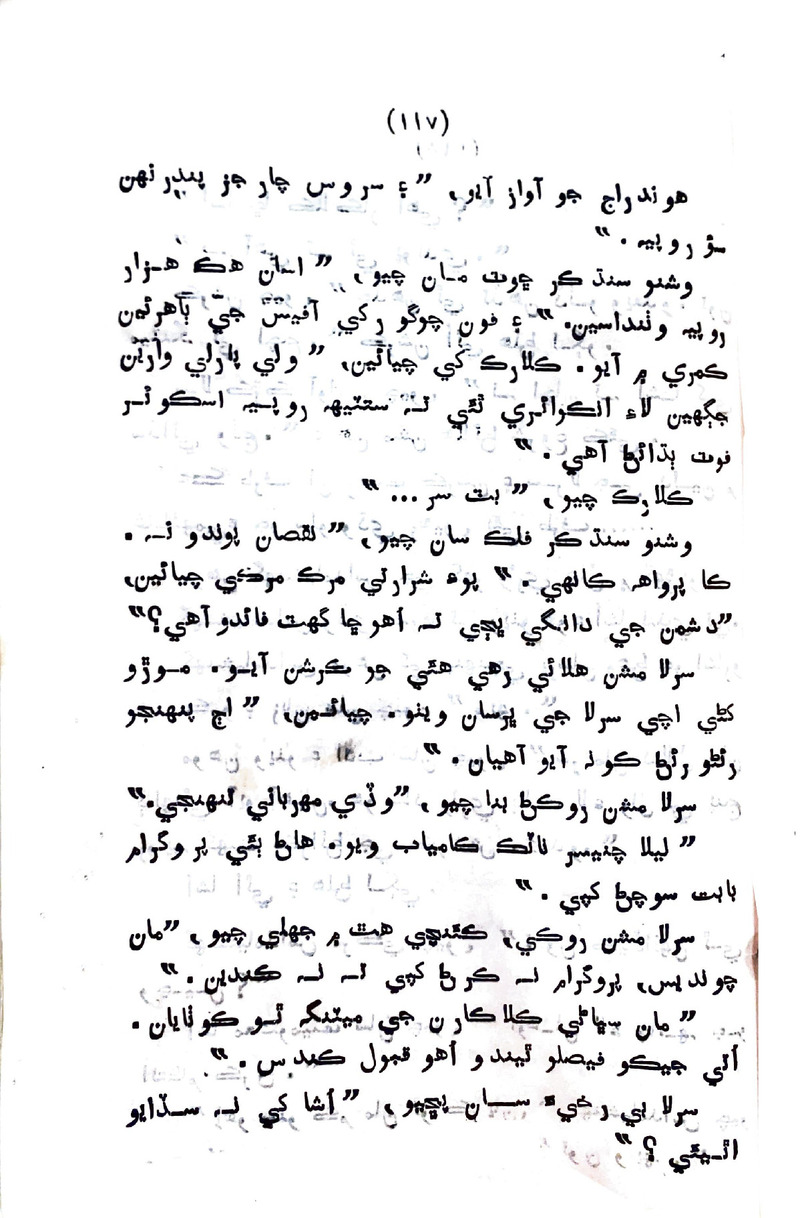 (١١٧)
هوندراج جو آواز آيو، ”۽ سروس چارجز پندرنهن
سؤ روپيه.“
وشنو سنڌڪر چوٽ مان چيو، ”اسان هڪ هزار
روپيه وٺنداسين.“ ۽ فون چوگو رکي آفيس جي ٻاهرئين
ڪمري ۾ آيو. ڪلارڪ کي چيائين، ”ولي پارلي وارين
جڳهين لاءِ انڪوائري ٿئي ته ستٽيهه روپيه اسڪوئر
فوٽ ٻڌائڻ آهي.“
ڪلارڪ چيو، ”بٽ سر...“
وشنو سنڌڪر فلڪ سان چيو، ”نقصان پوندو نه.
ڪا پرواهه ڪانهي.“ پوءِ شرارتي مرڪ مرڪي چيائين،
”دشمن جي دانگي ڀڃي ته اهو ڇا گهٽ فائدو آهي؟“
سرلا مشن هلائي رهي هئي جو ڪرشن آيو. موڙو
کڻي اچي سرلا جي ڀرسان ويٺو. چيائين، ”اڄ پنهنجو
رئڻو رئڻ ڪو نه آيو آهيان.“
سرلا مشن روڪڻ بنا چيو، ”وڏي مهرباني تنهنجي.“
”ليلا چنيسر ناٽڪ ڪامياب ويو. هاڻ ٻئي پروگرام
بابت سوچڻ کپي.“
سرلا مشن روڪي، ڪئنچي هٿ ۾ جهلي چيو، ”مان
چونديس، پروگرام نه ڪرڻ کپي ته نه ڪندين.“
”مان سڀاڻي ڪلاڪارن جي ميٽنگ ٿو ڪوٺايان.
اُتي جيڪو فيصلو ٿيندو اُهو قبول ڪندس.“
سرلا بي رخيءَ سان پڇيو، ”اُشا کي نه سڏايو
اٿيئي؟“